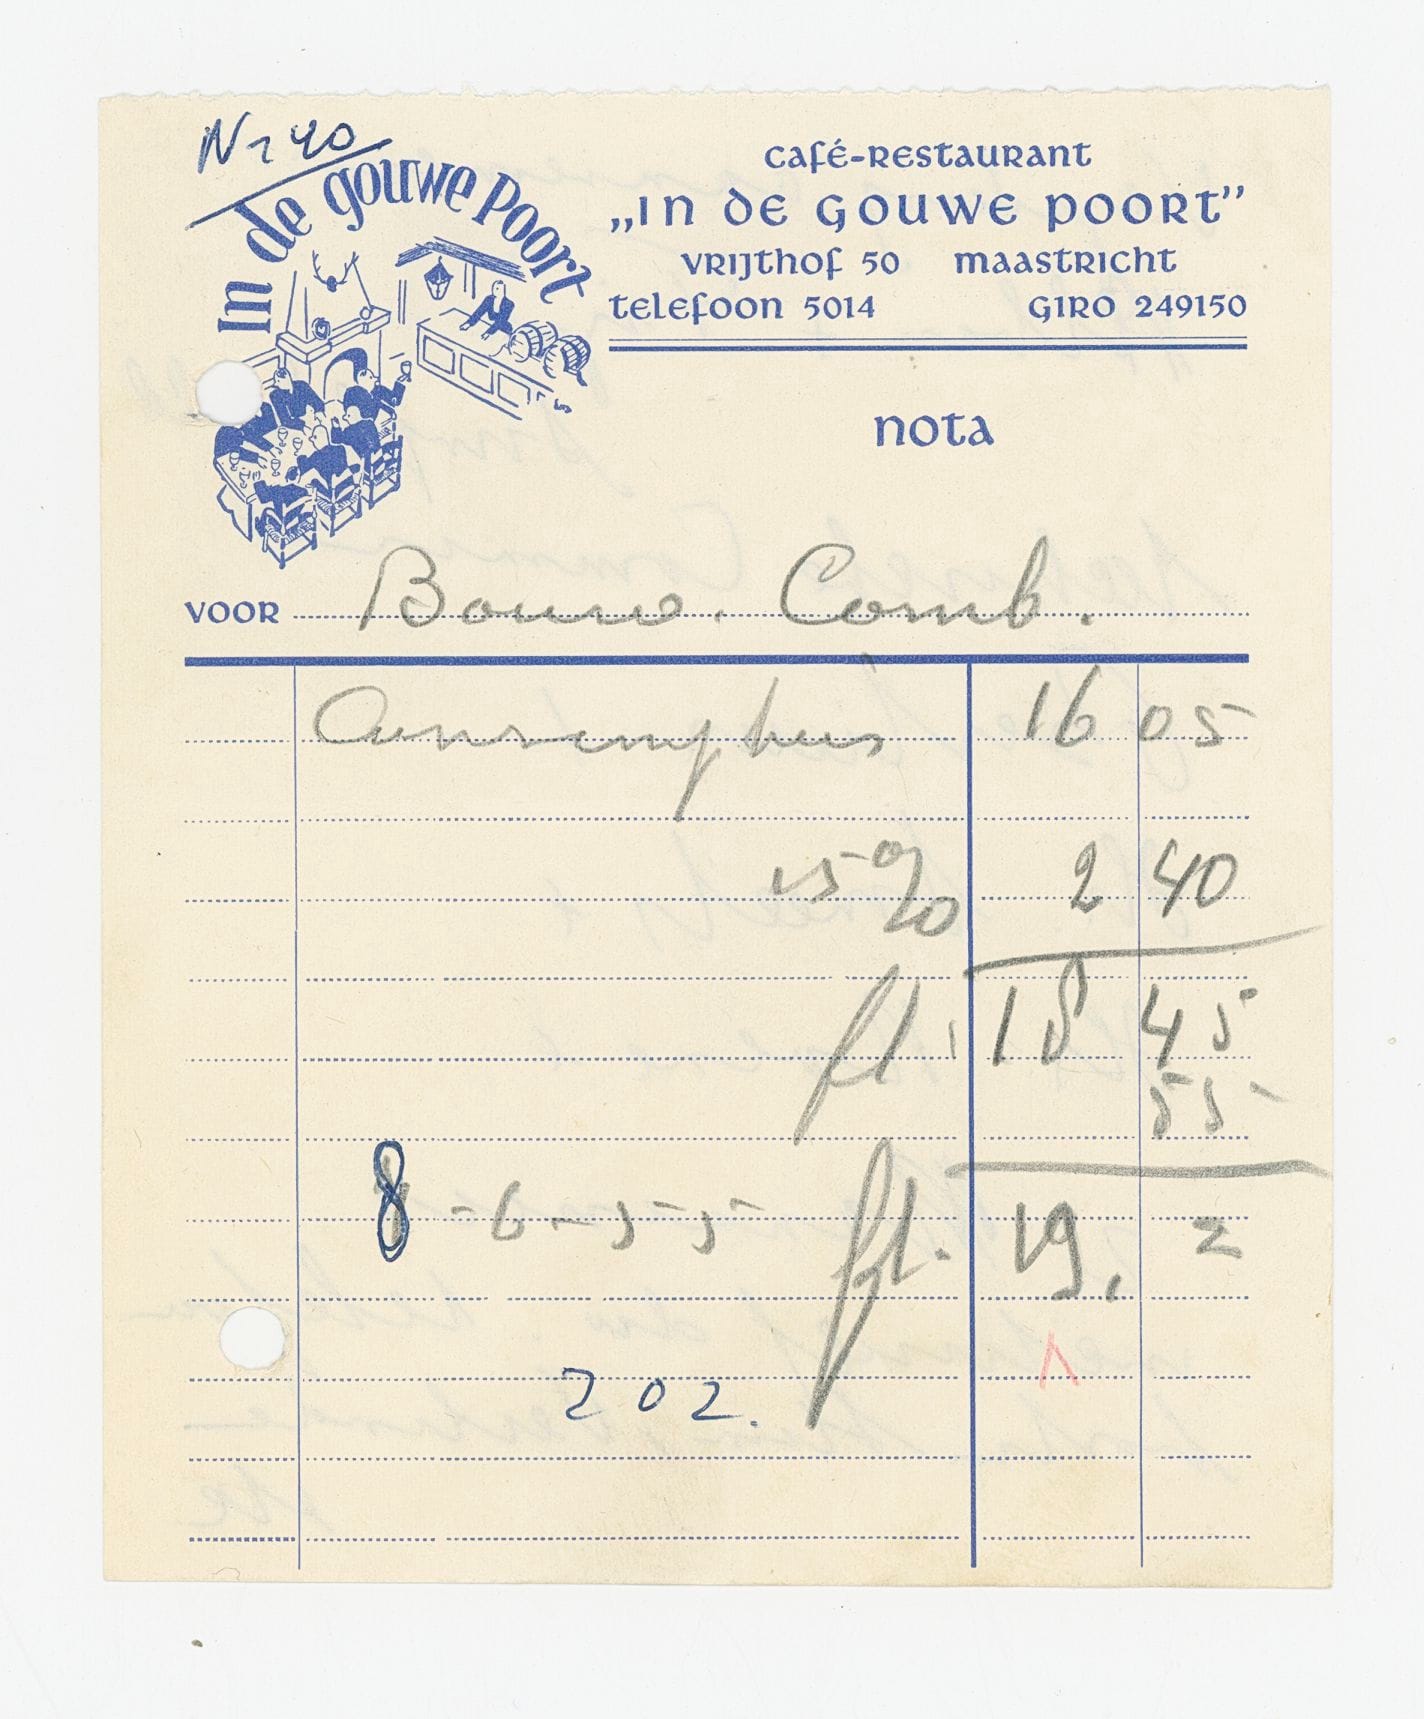 Nr 40
In de gouwe poort
café-restaurant
„In de gouwe poort”
vrijthof 50 maastricht
telefoon 5014 giro 249150
nota
voor Bouw. Comb.
Consumpties 16 05
15 % 2 40
fl. 18 45
55
8-6-55 fl. 19, =
202.